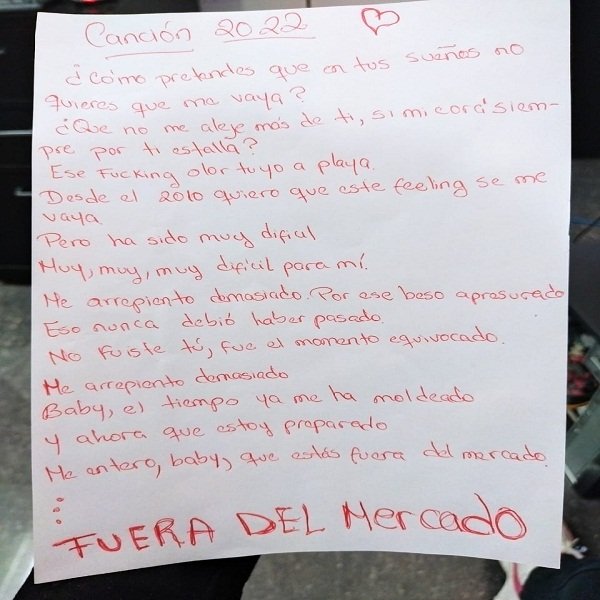 Canción 2022
¿Cómo pretendes que en tus sueños no
quieres que me vaya?
¿Que no me aleje más de ti, si mi cora siem-
pre por ti estalla?
Ese Fucking olor tuyo a playa.
Desde el 2010 quiero que este feeling se me
vaya
Pero ha sido muy dificil
Muy, muy, muy dificil para mí.
Me arrepiento demasiado. Por ese beso apresurado
Eso nunca debió haber pasado.
No Fuiste tú, fue el momento equivocado.
Me arrepiento demasiado
Baby, el tiempo ya me ha moldeado
y ahora que estoy preparado
Me entero, baby, que estás fuera del mercado.
...
FUERA DEL Mercado